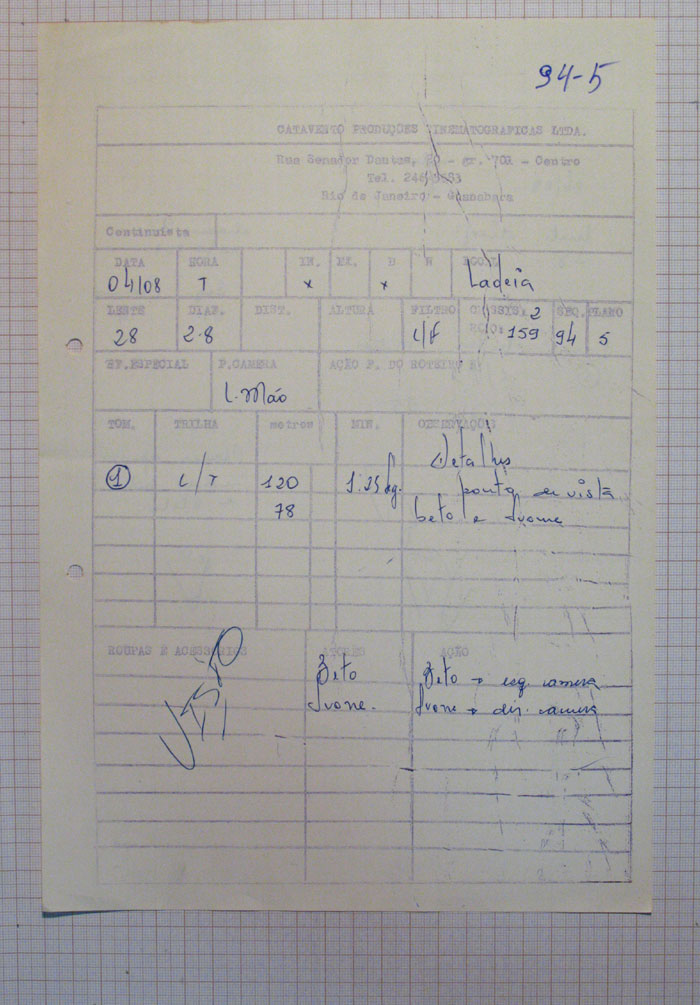 94-5
CATAVENTO PRODUÇÕES CINEMATOGRAFICAS LTDA.
Rua Senador Dantas, - gr. 701 - Centro
Tel.
Rio de Janeiro - Guanabara
Continuista
DATA HORA IN. EX. D N LOCAL
04/08 T x x Ladeia
LENTE DIAF. DIST. ALTURA FILTRO CHASSIS, 2 SEQ. PLANO
28 2.8 c/f 159 94 5
EF. ESPECIAL P. CAMERA AÇÃO P. DO ROTEIRO
C. Mão
TOM. TRILHA metros MIN. OBSERVAÇÃO
Detalhes
1 c/T 120 ponto de vista
78 beto e Ivone
ROUPAS E ACESSÓRIOS ATORES AÇÃO
Beto Beto → esq. camera
Ivone. Ivone → dir. camera
VISTO